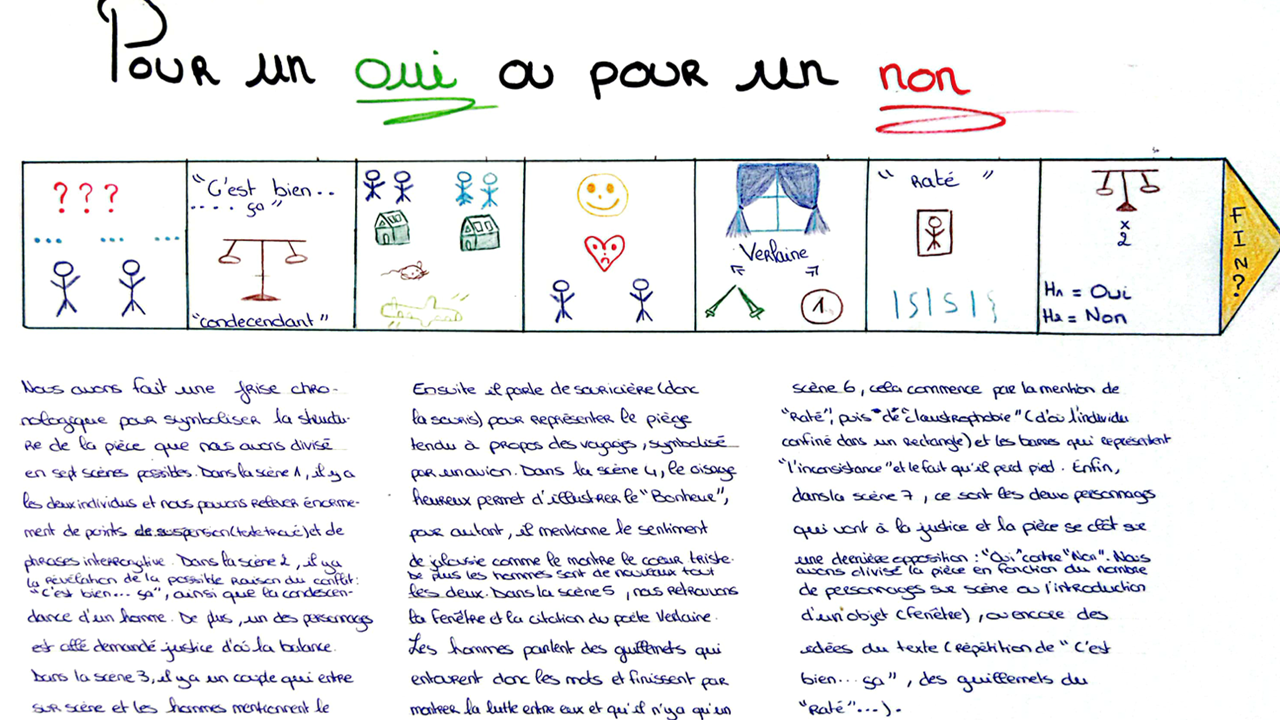 Pour un oui ou pour un non
? ? ?
... ... ...
"C'est bien..
.... ça"
"condecendant"
Verlaine
1
" Raté "
x
2
H1 = Oui
H2 = Non
FIN?
Nous avons fait une frise chro-
nologique pour symboliser la structu-
re de la pièce que nous avons divisé
en sept scènes possibles. Dans la scène 1, il y a
les deux individus et nous pouvons relever énorme-
ment de points de suspension (tote tracé) et de
phrases interrogative. Dans la scène 2, il y a
la révélation de la possible raison du conflit :
"C'est bien... ça", ainsi que la condescen-
dance d'un homme. De plus, un des personnages
est allé demandé justice d'où la balance.
Dans la scène 3, il y a un couple qui entre
sur scène et les hommes mentionnent le
Ensuite il parle de souricière (donc
la souris) pour représenter le piège
tendu à propos des voyages, symbolisé
par un avion. Dans la scène 4, le visage
heureux permet d'illustrer le "Bonheur",
pour autant, il mentionne le sentiment
de jalousie comme le montre le coeur triste.
De plus les hommes sont de nouveaux tout
les deux. Dans la scène 5, nous retrouvons
la fenêtre et la citation du poète Verlaine.
Les hommes parlent des guillemets qui
entourent donc les mots et finissent par
montrer la lutte entre eux et qu'il n'y a qu'un
scène 6, cela commence par la mention de
"Raté", puis de "claustrophobie" (d'où l'individu
confiné dans un rectangle) et les barres qui représentent
"l'inconsistance" et le fait qu'il perd pied. Enfin,
dans la scène 7, ce sont les deux personnages
qui vont à la justice et la pièce se clôt sur
une dernière opposition : "Oui" contre "Non". Nous
avons divisé la pièce en fonction du nombre
de personnages sur scène ou l'introduction
d'un objet (fenêtre), ou encore des
idées du texte (répétition de "C'est
bien... ça", des guillemets du
"Raté"...).